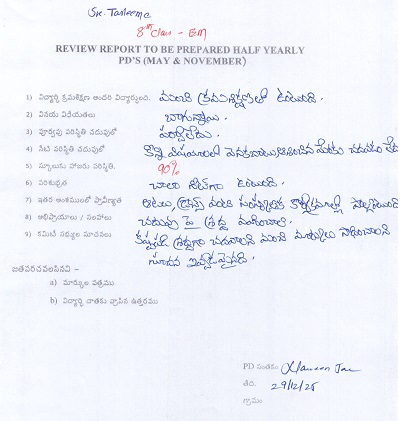 SK. Tasleema
8th Class - EM
REVIEW REPORT TO BE PREPARED HALF YEARLY
PD'S (MAY & NOVEMBER)
1) విద్యార్థి క్రమశిక్షణ అందరి విద్యార్థులది. మంచి క్రమశిక్షణలో ఉంటుంది.
2) వినయ విధేయతలు బాగున్నాయి.
3) పూర్వపు పరిస్థితి చదువులో పర్వాలేదు.
4) నేటి పరిస్థితి చదువులో కొన్ని విషయాలలో
5) స్కూలుకు హాజరు పరిస్థితి. 90%
6) పరిశుభ్రత చాలా నీట్‌గా ఉంటుంది.
7) ఇతర అంశములలో ప్రావీణ్యత ఆటలు, డ్రాన్స్ వంటి సాంస్కృతిక
8) అభిప్రాయాలు / సలహాలు చదువు పై శ్రద్ధ వహించాలి.
9) కమిటీ సభ్యుల సూచనలు కష్టపడి శ్రద్ధగా చదవాలని మంచి మార్కులు సాధించాలని
సూచన ఇవ్వడమైనది.
జతపరచవలసినవి -
a) మార్కుల పత్రము
b) విద్యార్థి దాతకు వ్రాసిన ఉత్తరము
PD సంతకం
తేది. 29/12/25
గ్రామం: